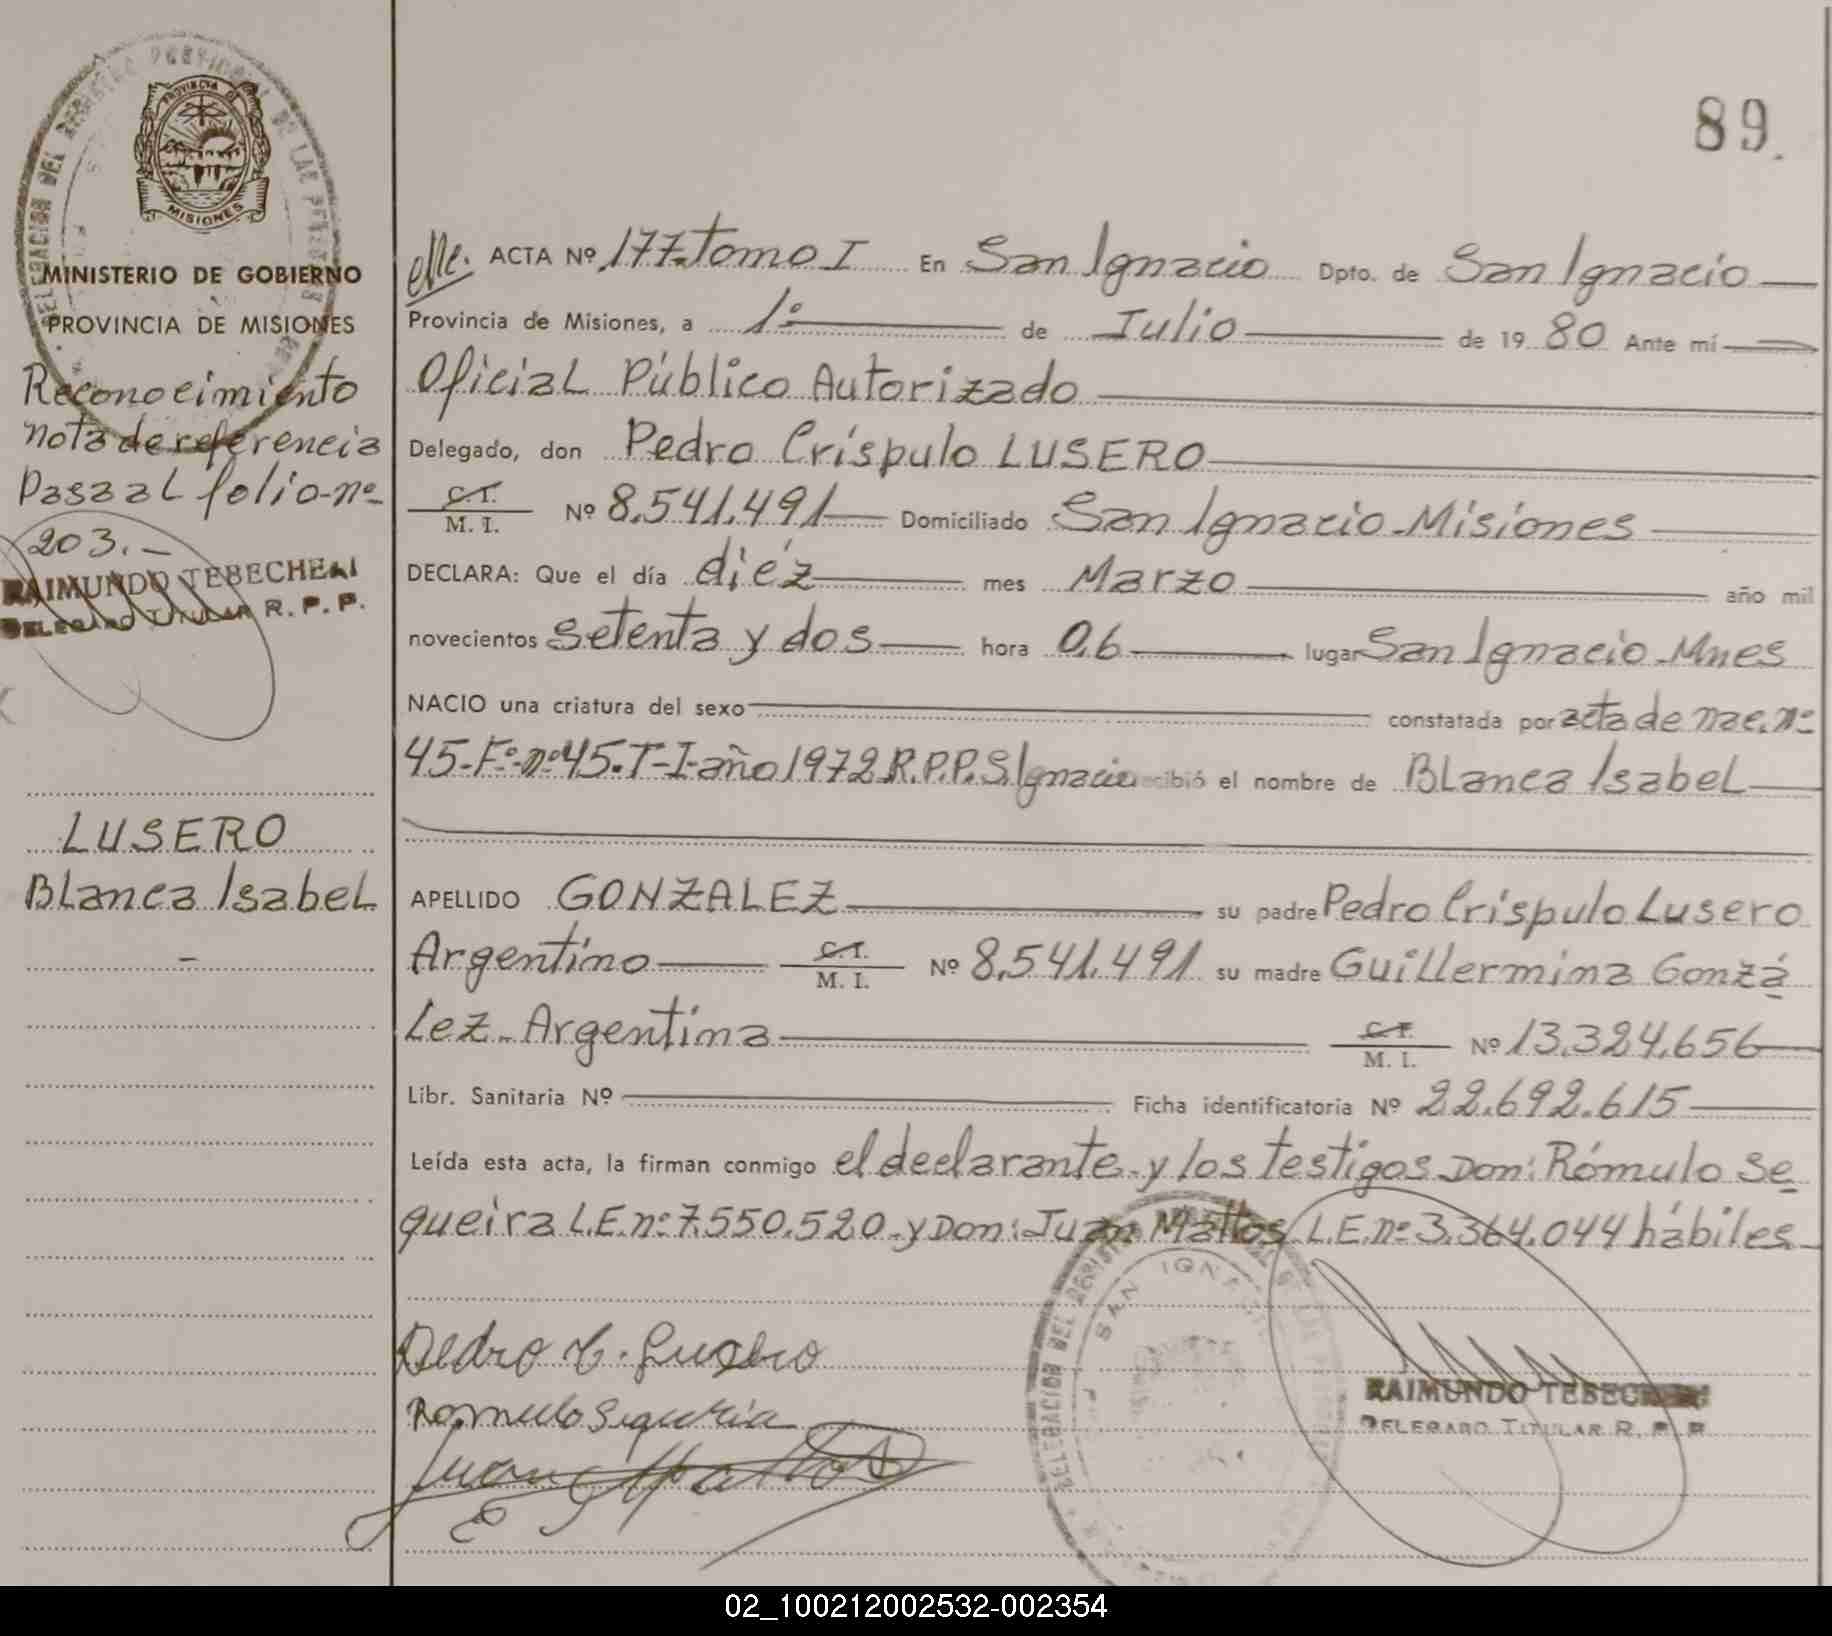 89
PROVINCIA DE
MISIONES
MINISTERIO DE GOBIERNO
PROVINCIA DE MISIONES
Reconocimiento
nota de referencia
Pasa al folio-nº
203.-
RAIMUNDO TEBECHERI
DELEGADO TITULAR R. P. P.
LUSERO
Blanca Isabel
-
ACTA Nº 177. Tomo I En San Ignacio Dpto. de San Ignacio
Provincia de Misiones, a 1º de Julio de 1980 Ante mí
Oficial Público Autorizado
Delegado, don Pedro Críspulo LUSERO
C.I.
M. I. Nº 8.541.491 Domiciliado San Ignacio-Misiones
DECLARA: Que el día diéz mes Marzo año mil
novecientos setenta y dos hora 0,6 lugar San Ignacio-Mnes
NACIO una criatura del sexo constatada por acta de nac. nº
45-Fº-nº45.T-I-año 1972 R.P.P.S.Ignacio recibió el nombre de Blanca Isabel
APELLIDO GONZALEZ su padre Pedro Críspulo Lusero
Argentino C.I.
M. I. Nº 8.541.491 su madre Guillermina Gonzá
lez-Argentina C.I.
M. I. Nº 13.324.656
Libr. Sanitaria Nº Ficha identificatoria Nº 22.692.615
Leída esta acta, la firman conmigo el declarante y los testigos Don: Rómulo Se
queira L.E.nº 7.550.520 y Don: Juan Mattos L.E.nº 3.364.044 hábiles-
DELEGACION DEL REGISTRO
SAN IGNACIO
Pedro C. Lusero
Romulo Siqueria
Juan Mattos
RAIMUNDO TEBECHERI
DELEGADO TITULAR R. P. P.
02_100212002532-002354